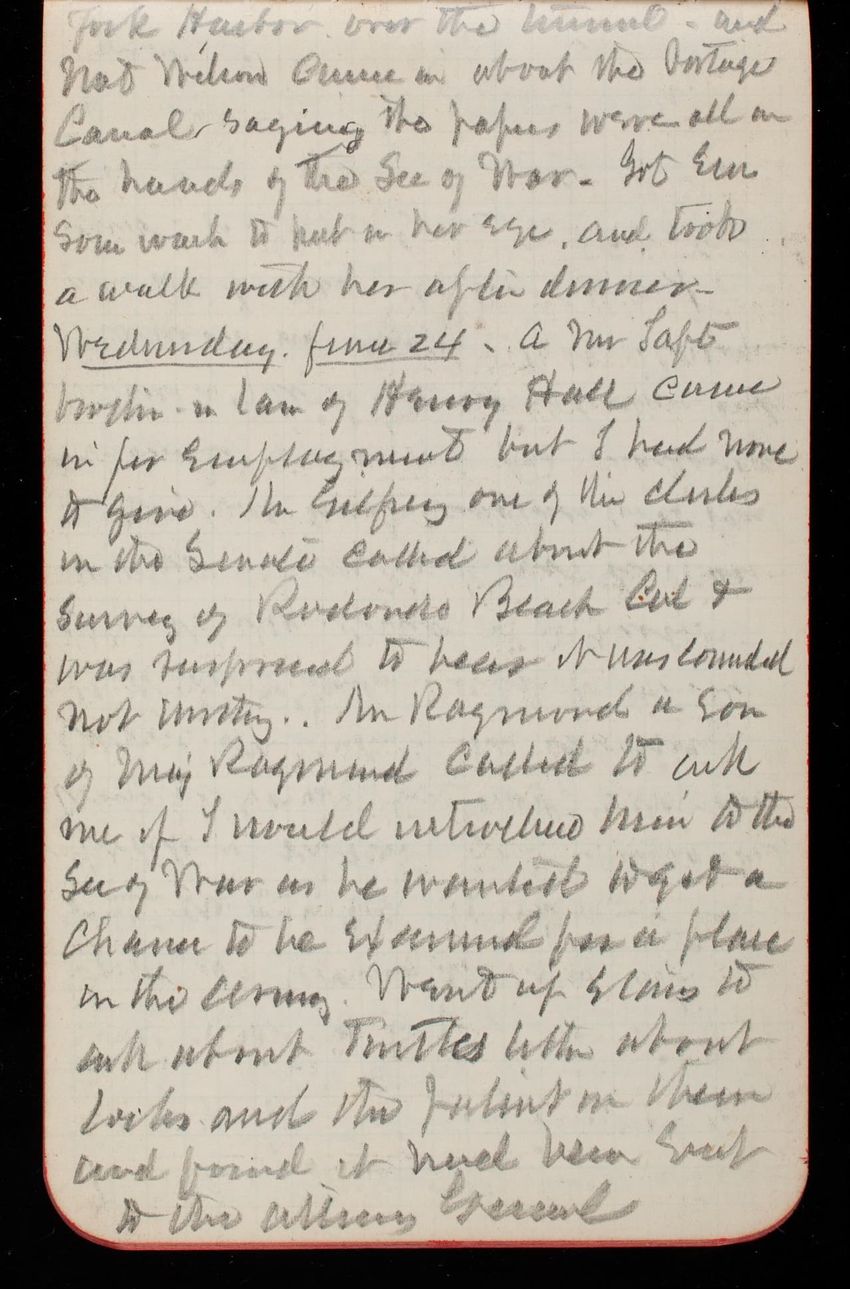 York Harbor over the tunnel - and
Nat Wilson came in about the Portage
Canal saying the papers were all in
the hands of the Sec of War - Got Em
some wash to put in her eye, and took
a walk with her after dinner -
Wednesday. June 24 - A Mr Taft
brother in law of Henry Hall came
in for employment but I had none
to give. Mr Gilfrey one of the clerks
in the Senate called about the
survey of Redondo Beach Cal &
was surprised to hear it was counted
not worthy.. Mr Raymond a son
of Maj Raymond called to ask
me if I would introduce him to the
Sec of War as he wanted to get a
chance to be examined for a place
in the army. Went up stairs to
ask about Tuttles letter about
locks and the patent on them
and found it had been sent
to the attorney General